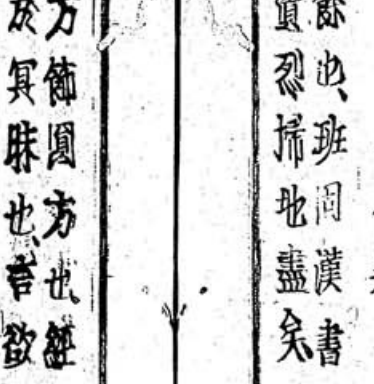 餘也、班固漢書
烈掃地盡矣
方飾圓方也。經
於冥昧也、言欲